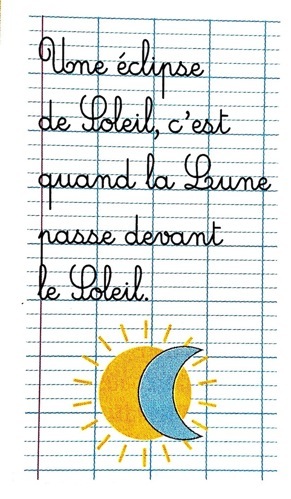 Une éclipse
de Soleil, c'est
quand la Lune
passe devant
le Soleil.